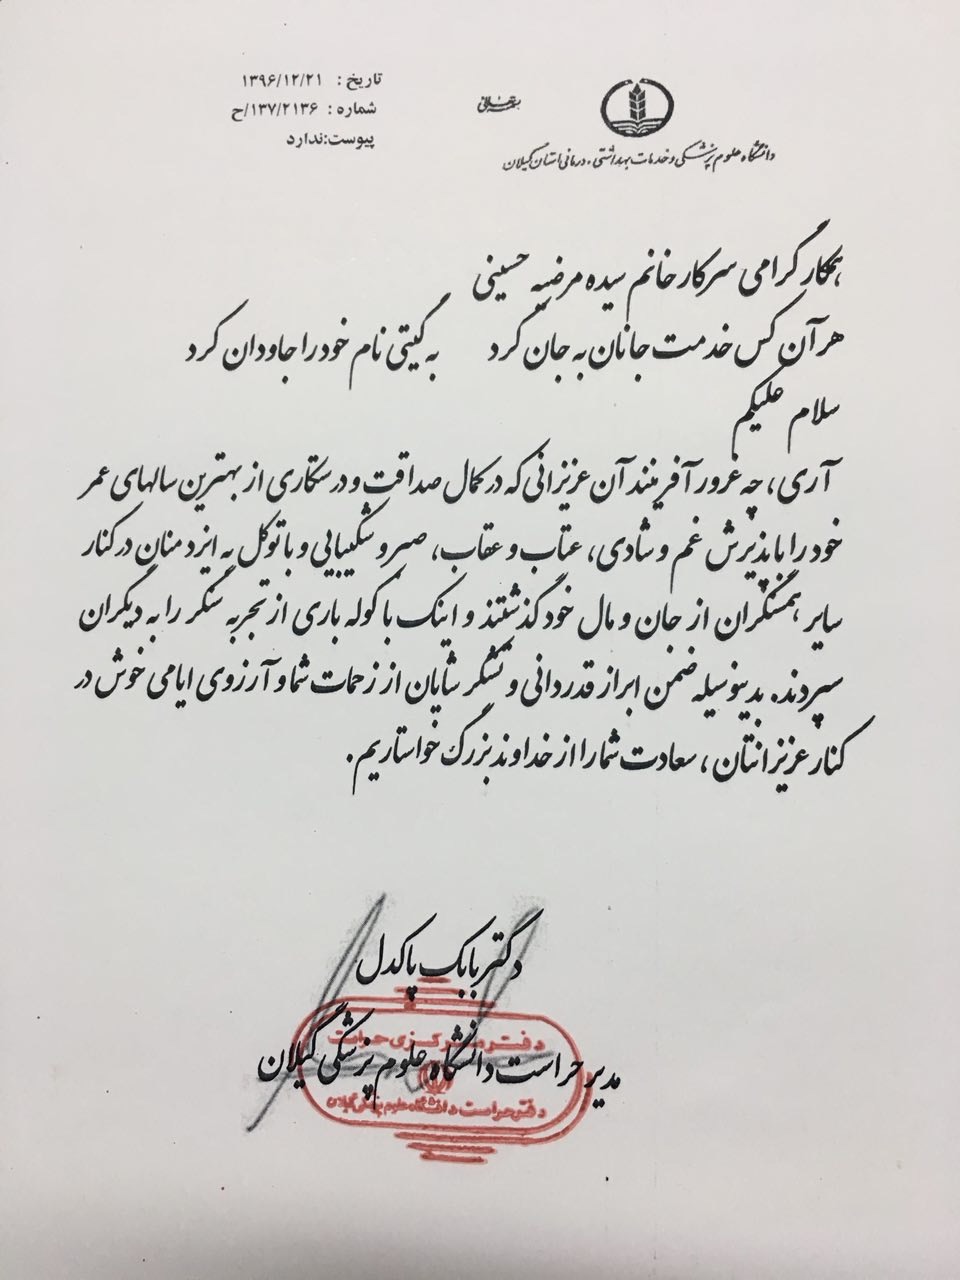 بسمه تعالی
دانشگاه علوم پزشکی و خدمات بهداشتی ، درمانی استان گیلان
تاریخ : ۱۳۹۶/۱۲/۲۱
شماره : ۱۳۷/۲۱۳۶/ح
پیوست:ندارد
همکار گرامی سرکار خانم سیده مرضیه حسینی
هر آن کس خدمت جانان به جان کرد به گیتی نام خود را جاودان کرد
سلام علیکم
آری، چه غرور آفرینند آن عزیزانی که در کمال صداقت و درستکاری از بهترین سالهای عمر
خود را با پذیرش غم و شادی، عتاب و عقاب، صبر و شکیبایی و با توکل به ایزد منان در کنار
سایر همسنگران از جان و مال خود گذشتند و اینک با کوله باری از تجربه سنگر را به دیگران
سپردند. بدینوسیله ضمن ابراز قدردانی و تشکر شایان از زحمات شما و آرزوی ایامی خوش در
کنار عزیزانتان ، سعادت شما را از خداوند بزرگ خواستاریم.
دکتر بابک پاکدل
مدیر حراست دانشگاه علوم پزشکی گیلان
دفتر مرکزی حراست
دفتر حراست دانشگاه علوم پزشکی گیلان